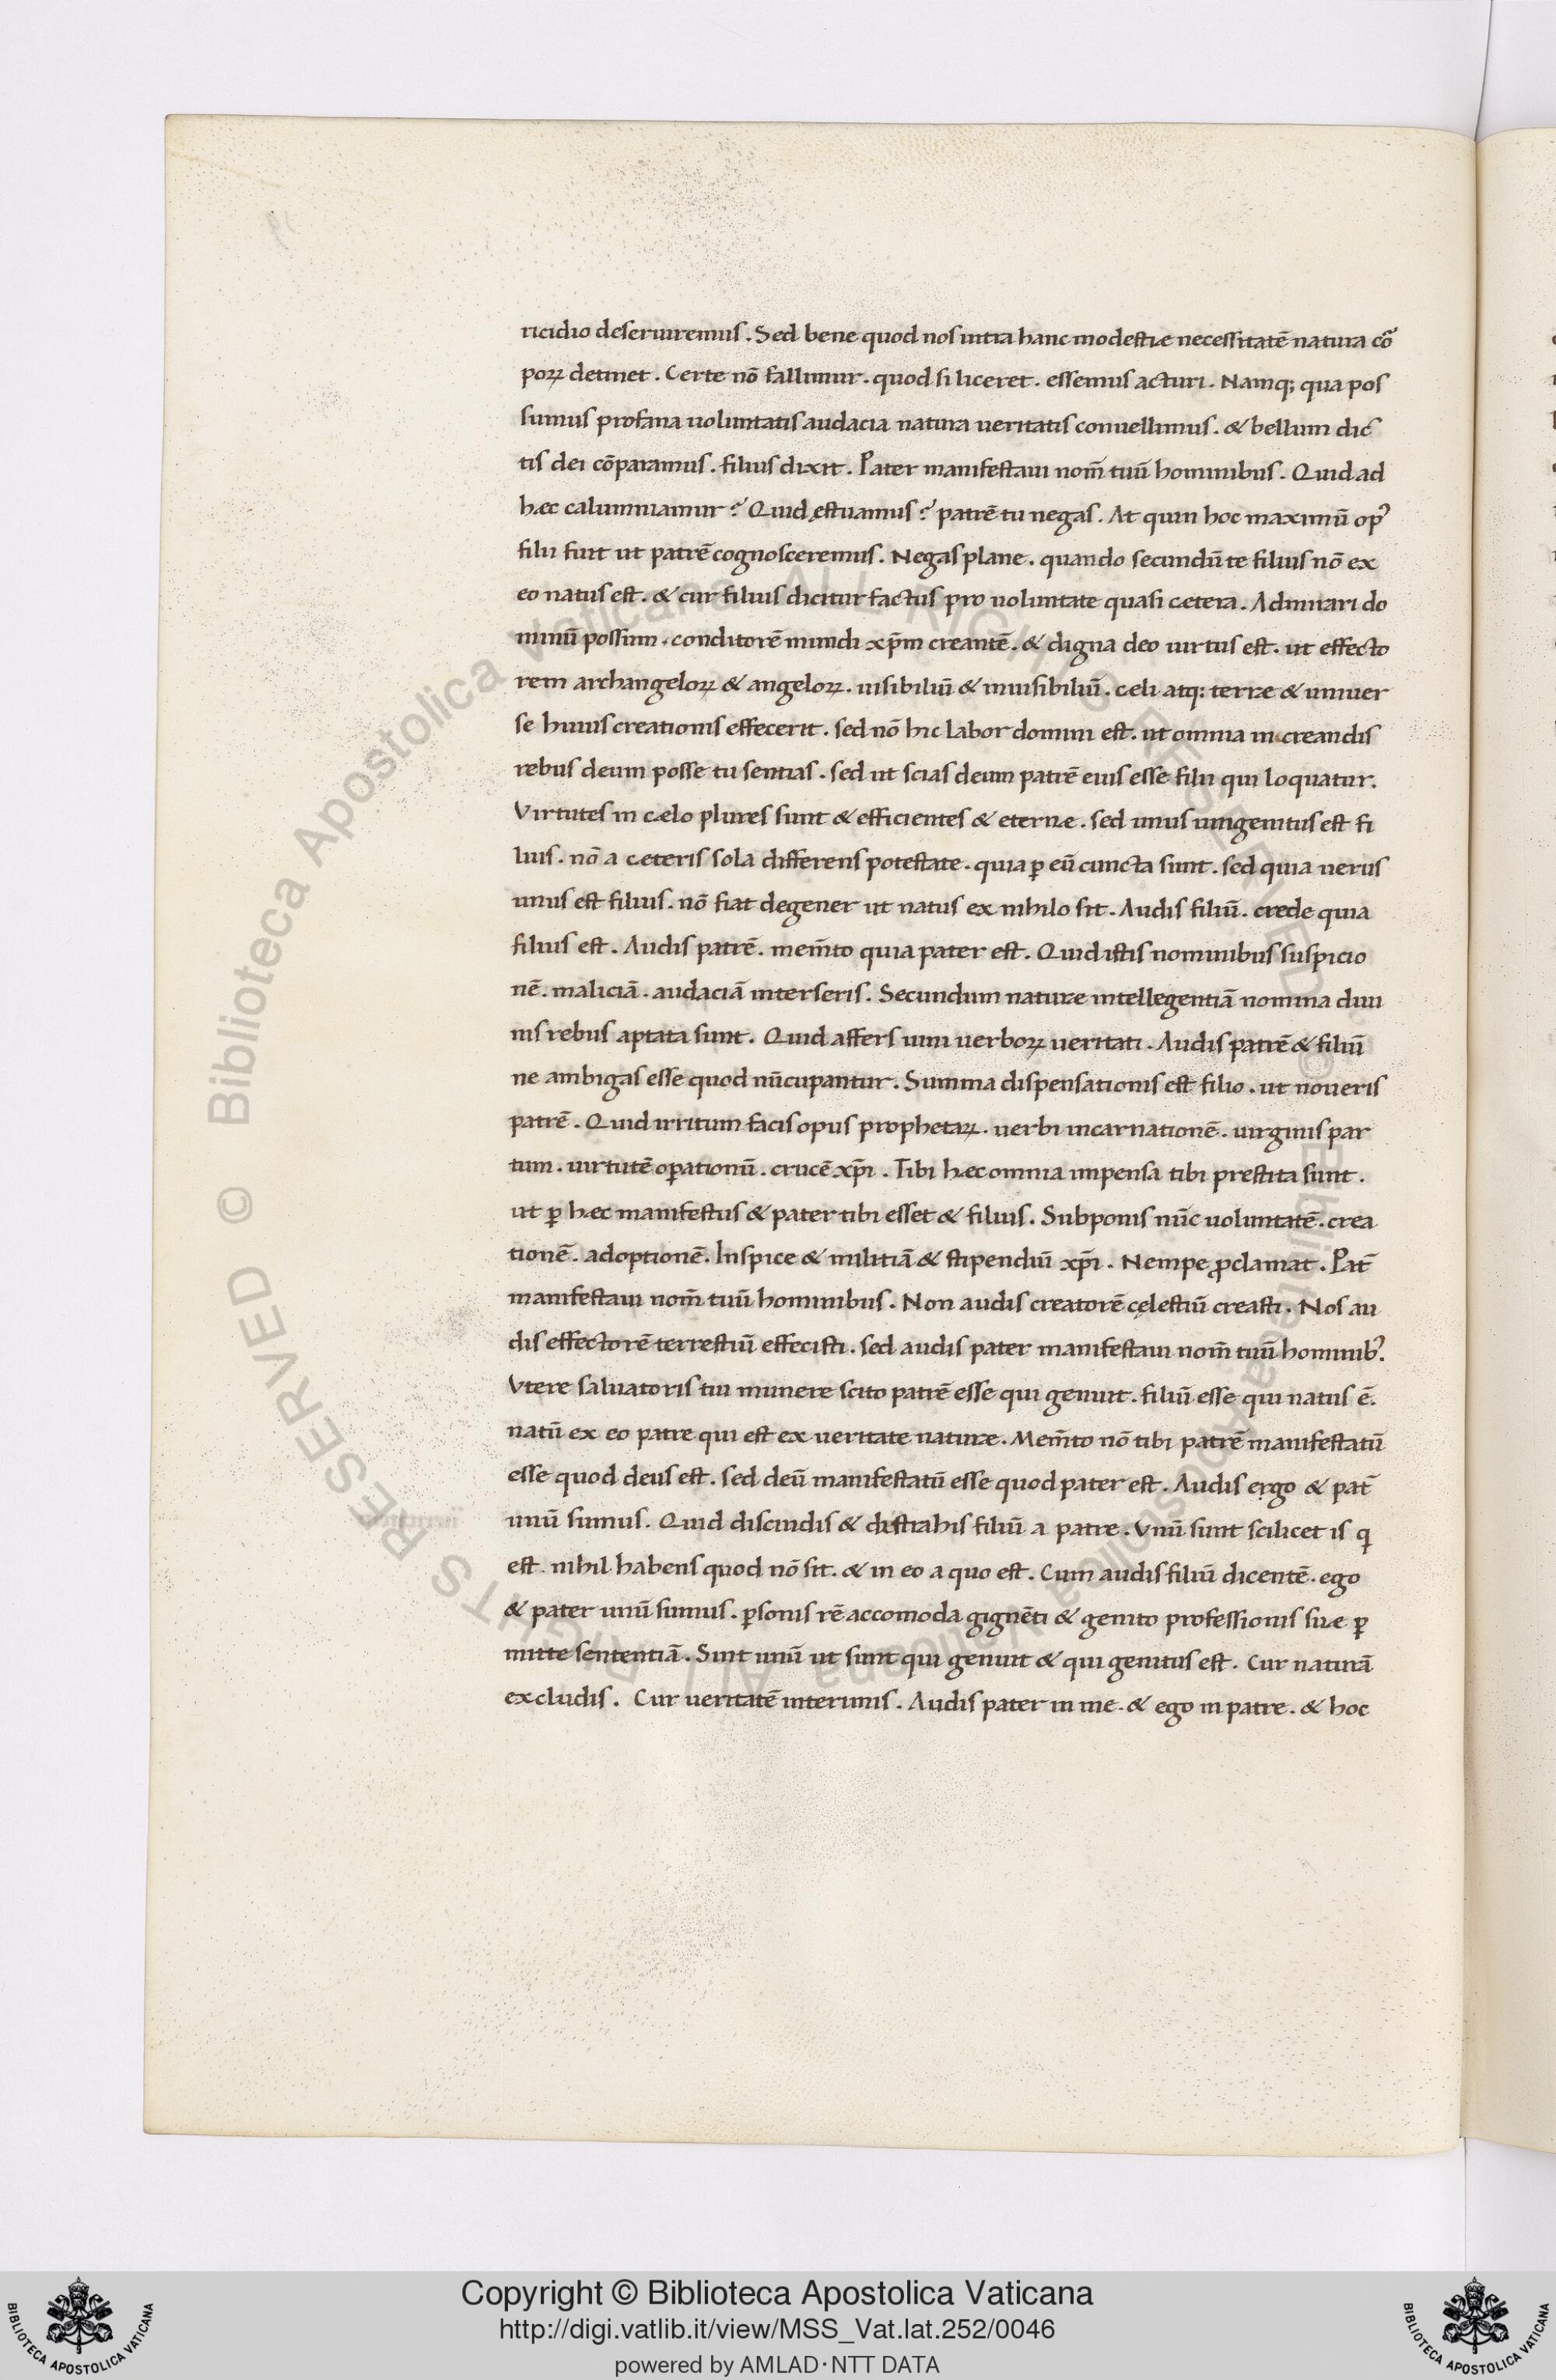 ricidio deseruiremus. Sed bene quod nos intra hanc modestiæ necessitatē natura cō
poꝝ detinet. Certe nō fallimur. quod si liceret. essemus acturi. Namq; qua pos
sumus profana uoluntatis audacia natura ueritatis conuellimus. & bellum dic
tis dei cōparamus. filius dixit. Pater manifestaui nom̄ tuū hominibus. Quid ad
hæc calumniamur? Quid ęstuamus? patrē tu negas. At quin hoc maximū opꝰ
filii fuit ut patrē cognosceremus. Negas plane. quando secundū te filius nō ex
eo natus est. & cur filius dicitur factus pro uoluntate quasi cetera. Admirari do
minū possum. conditorē mundi xp̄m creantē. & digna deo uirtus est. ut effecto
rem archangeloꝝ & angeloꝝ. uisibiliū & inuisibiliū. celi atq: terræ & uniuer
se huius creationis effecerit. sed nō hic labor domini est. ut omnia in creandis
rebus deum posse tu sentias. sed ut scias deum patrē eius esse filii qui loquatur.
Virtutes in cælo plures sunt & efficientes & eternæ. sed unus unigenitus est fi
lius. nō a ceteris sola differens potestate. quia ꝑ eū cuncta sunt. sed quia uerus
unus est filius. nō fiat degener ut natus ex nihilo sit. Audis filiū. crede quia
filius est. Audis patrē. mem̄to quia pater est. Quid istis nominibus suspicio
nē. maliciā. audaciā interseris. Secundum naturæ intellegentiā nomina diui
nis rebus aptata sunt. Quid affers uim uerboꝝ ueritati. Audis patrē & filiū
ne ambigas esse quod nūcupantur. Summa dispensationis est filio. ut noueris
patrē. Quid irritum facis opus prophetaꝝ. uerbi incarnationē. uirginis par
tum. uirtutē oꝑationū. crucē xp̄i. Tibi hæc omnia impensa tibi prestita sunt.
ut ꝑ hæc manifestus & pater tibi esset & filius. Subponis nūc uoluntatē. crea
tionē. adoptionē. Inspice & militiā & stipendiū xp̄i. Nempe ꝓclamat. Pat̄
manifestaui nom̄ tuū hominibus. Non audis creatorē cęlestiū creasti. Nos au
dis effectorē terrestiū effecisti. sed audis pater manifestaui nom̄ tuū hominibꝰ.
Vtere saluatoris tui munere scito patrē esse qui genuit. filiū esse qui natus ē.
natū ex eo patre qui est ex ueritate naturæ. Mem̄to nō tibi patrē manifestatū
esse quod deus est. sed deū manifestatū esse quod pater est. Audis ergo & pat̄
unū sumus. Quid discindis & distrahis filiū a patre. Vnū sunt scilicet is q
est. nihil habens quod nō sit. & in eo a quo est. Cum audis filiū dicentē. ego
& pater unū sumus. ꝑsonis rē accomoda gignēti & genito professionis suæ ꝑ
mitte sententiā. Sint unū ut sunt qui genuit & qui genitus est. Cur naturā
excludis. Cur ueritatē interimis. Audis pater in me. & ego in patre. & hoc
© Biblioteca Apostolica Vaticana ALL RIGHTS RESERVED
© Biblioteca Apostolica Vaticana ALL RIGHTS RESERVED
Copyright © Biblioteca Apostolica Vaticana
http://digi.vatlib.it/view/MSS_Vat.lat.252/0046
powered by AMLAD·NTT DATA
BIBLIOTECA APOSTOLICA VATICANA
BIBLIOTECA APOSTOLICA VATICANA